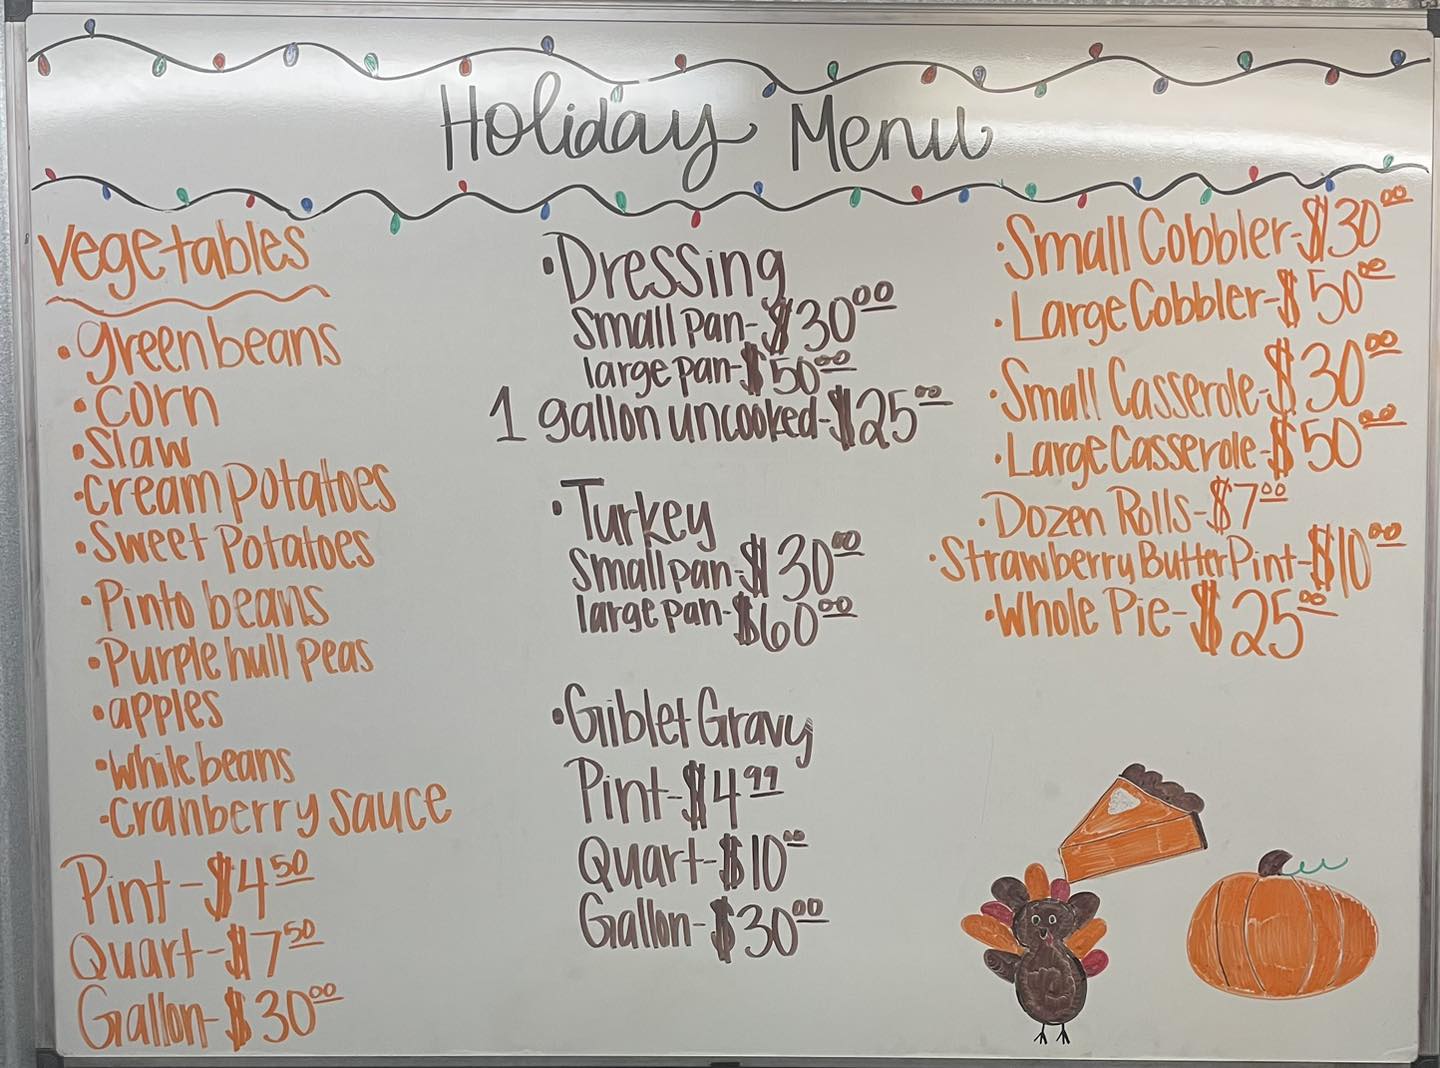 Holiday Menu
Vegetables
• green beans
• corn
• slaw
• cream potatoes
• Sweet Potatoes
• Pinto beans
• Purple hull peas
• apples
• white beans
• cranberry sauce
Pint - $4.50
Quart - $7.50
Gallon - $30.00
• Dressing
small pan - $30.00
large pan - $50.00
1 gallon uncooked - $25.00
• Turkey
small pan - $30.00
large pan - $60.00
• Giblet Gravy
Pint - $4.99
Quart - $10.00
Gallon - $30.00
• Small Cobbler - $30.00
• Large Cobbler - $50.00
• Small Casserole - $30.00
• Large Casserole - $50.00
• Dozen Rolls - $7.00
• Strawberry Butter Pint - $10.00
• Whole Pie - $25.00